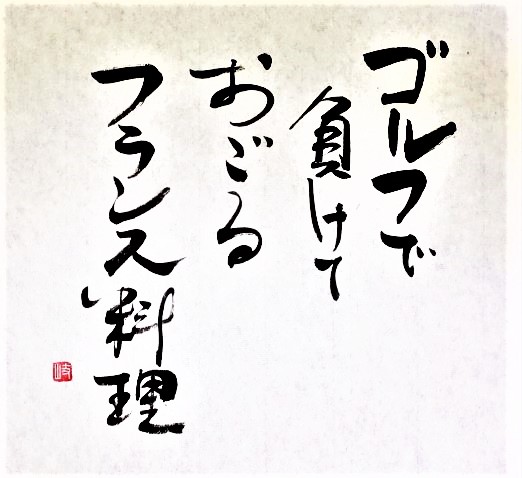 ゴルフで
負けて
おごる
フランス料理